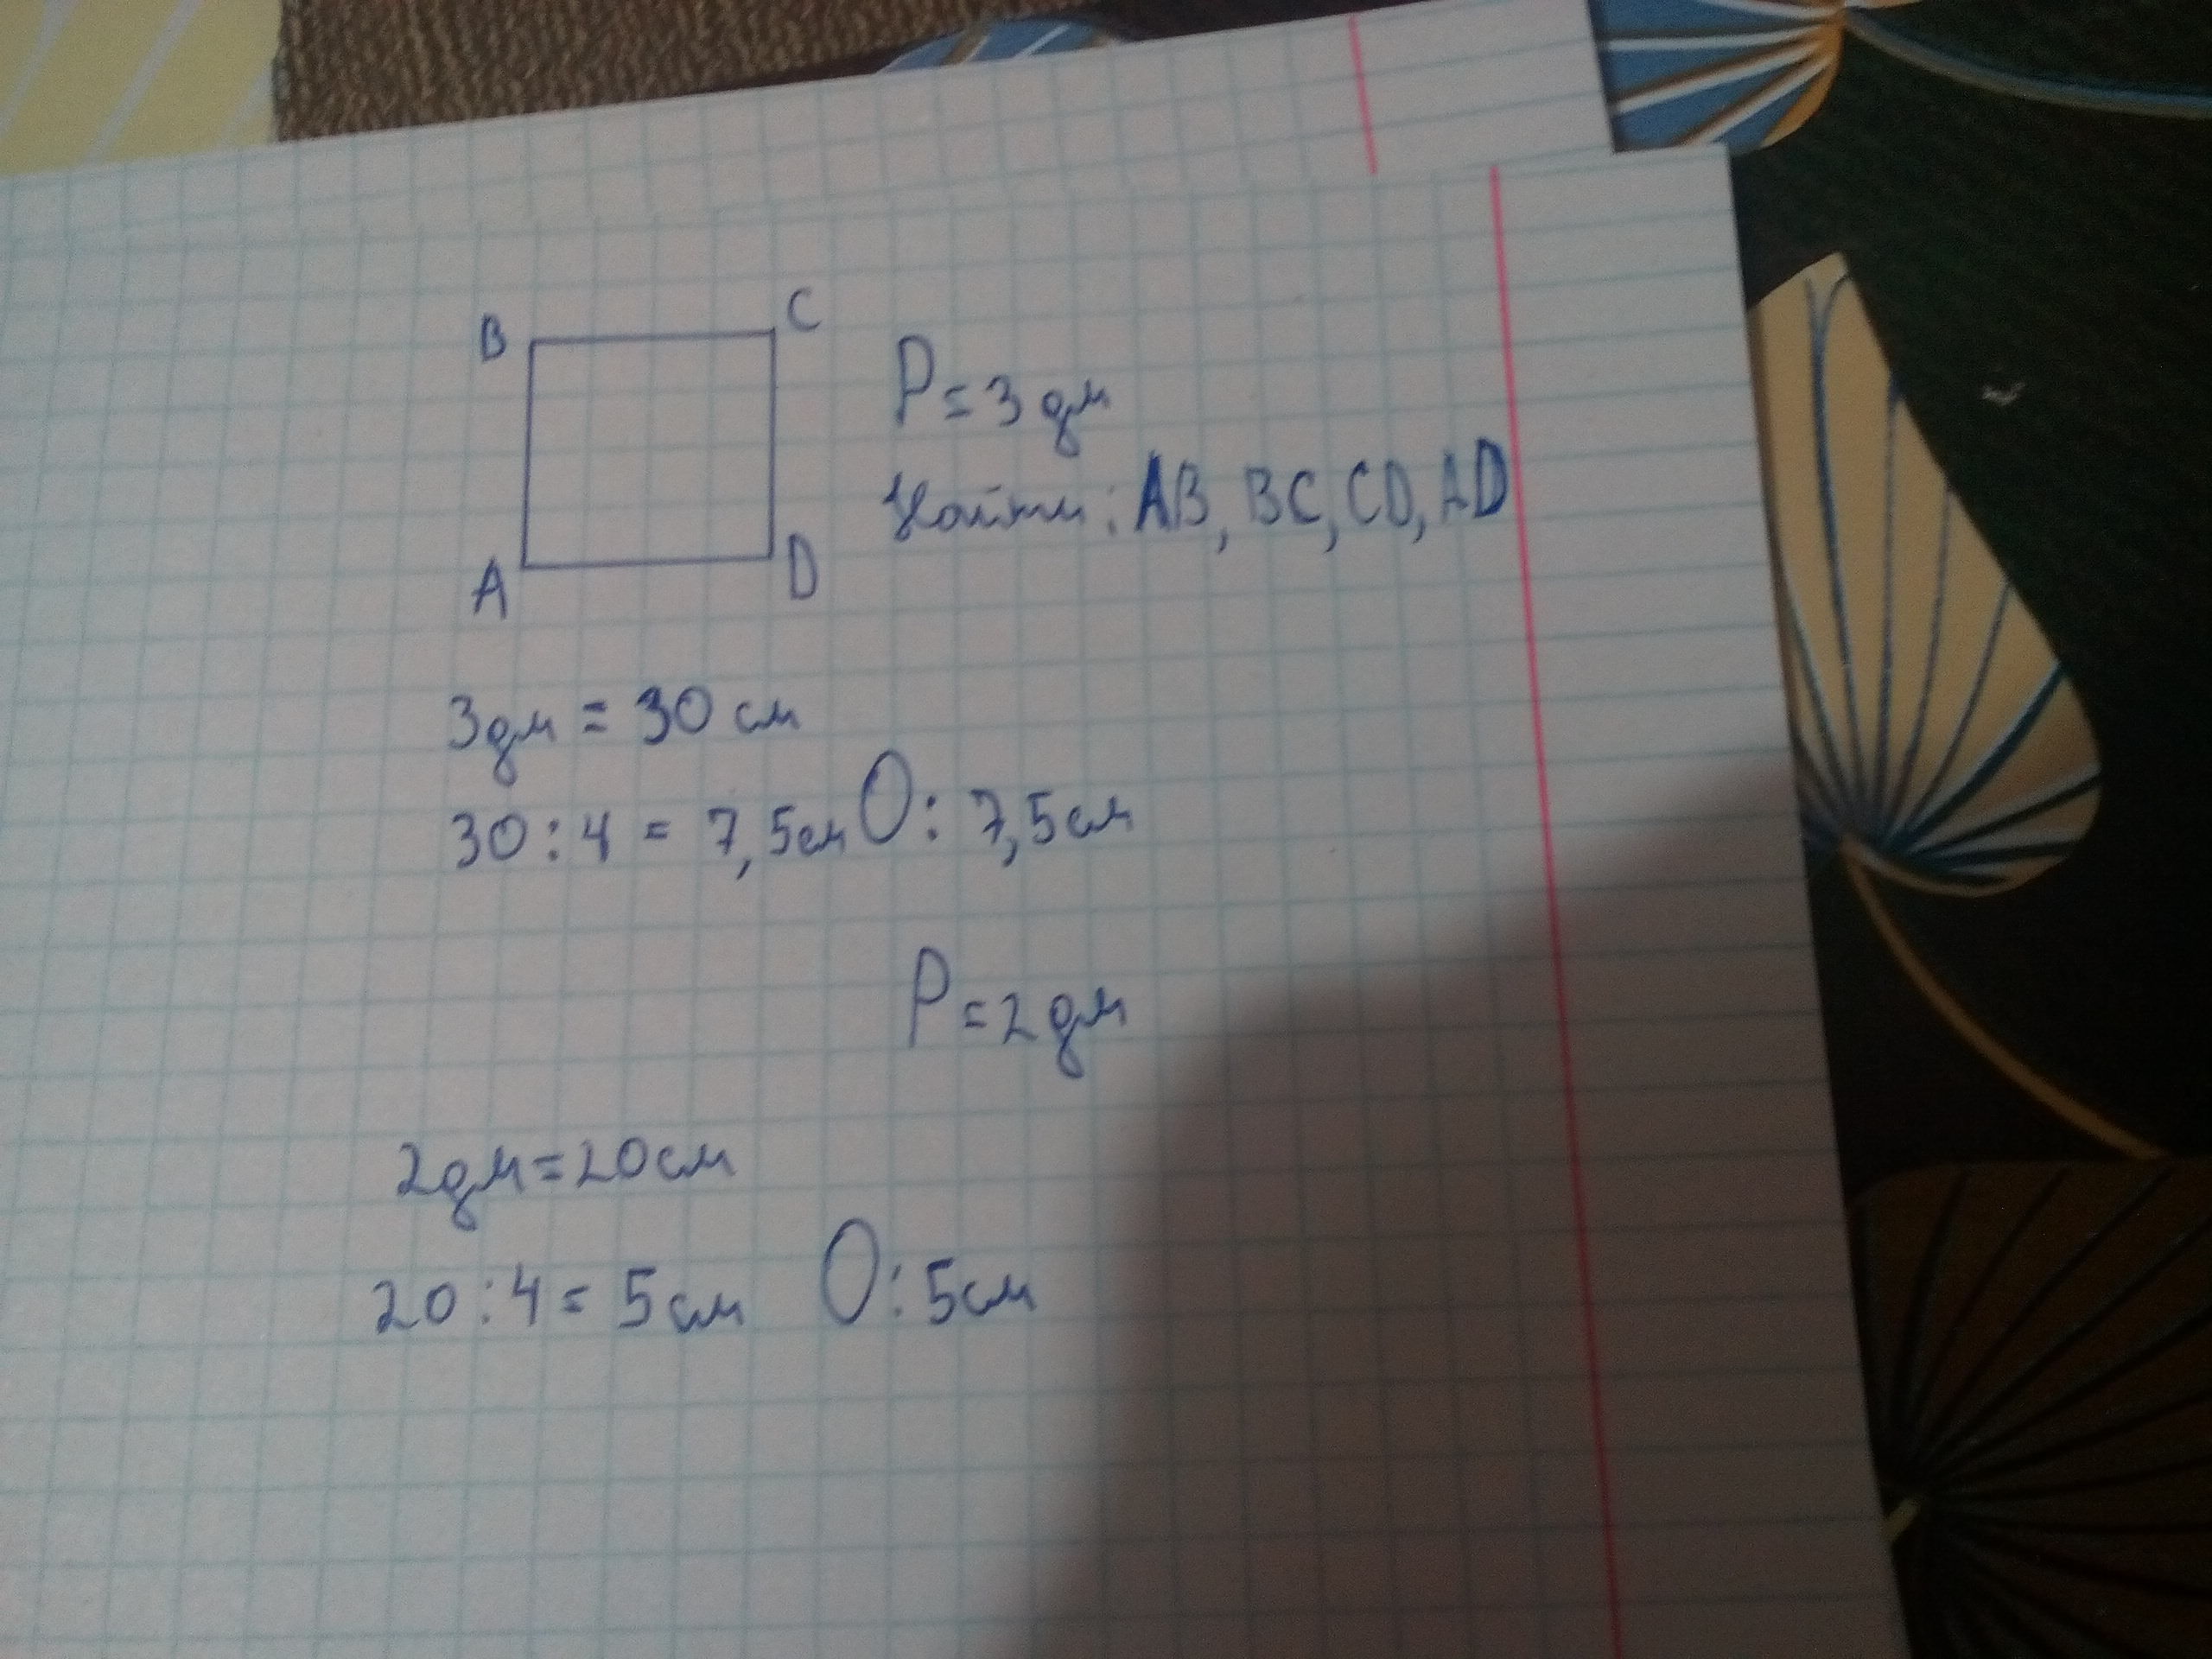 B C
P=3 дм
Найти: AB, BC, CD, AD
A D
3дм = 30 см
30 : 4 = 7,5см О: 7,5см
P=2дм
2дм=20см
20:4= 5см О: 5см